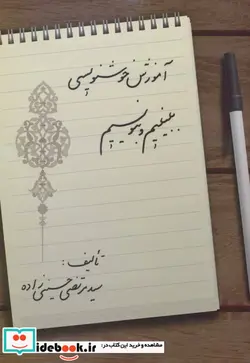 آموزش خوشنویسی
ببینیم و بنویسیم
تألیف:
سید مرتضی حسینی زاده
مشاهده و خرید این کتاب در:
idebook.ir